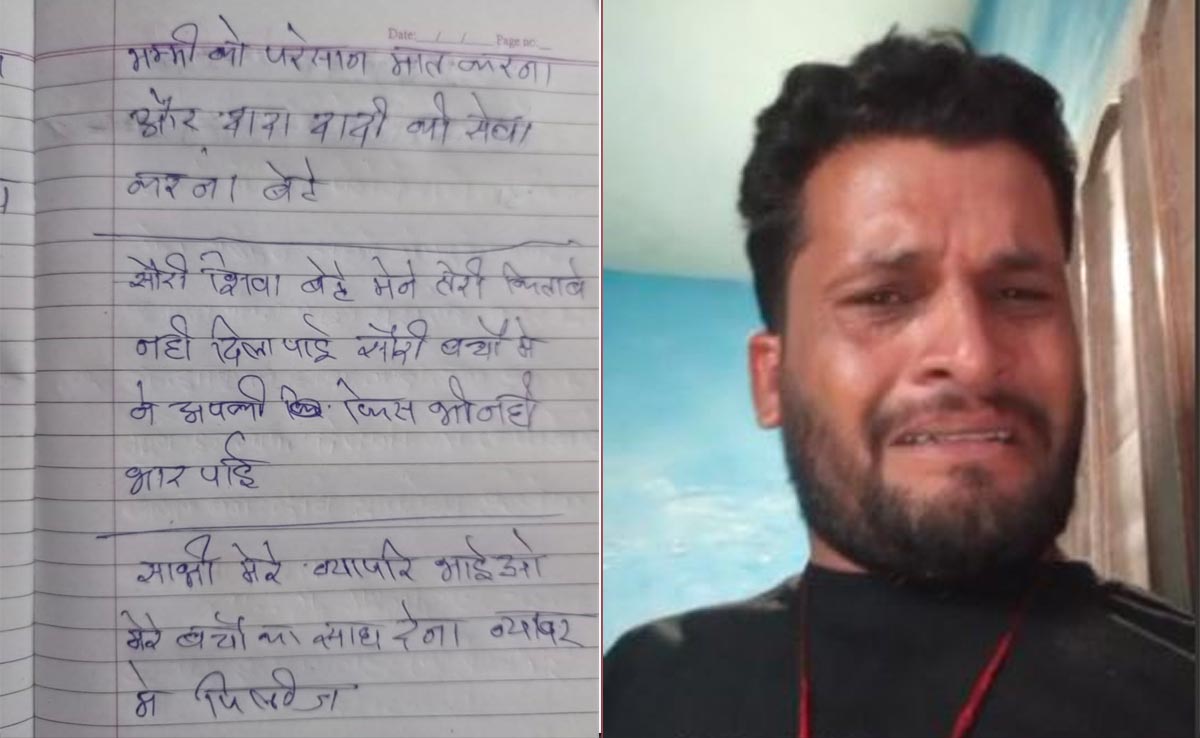 Date: __/__/__ Page no:__
मम्मी को परेसान मात करना
और दादा दादी की सेवा
करनां बेटे
सौरी शिवा बेटे मेने तेरी किताबे
नही दिला पाई सौरी बच्चौ मे
ने अपकी फिस भी नही
भार पाई
साभी मेरे व्यापारि भाईओ
मेरे बच्चौ का साथ देना व्यापार
मे पिलीज